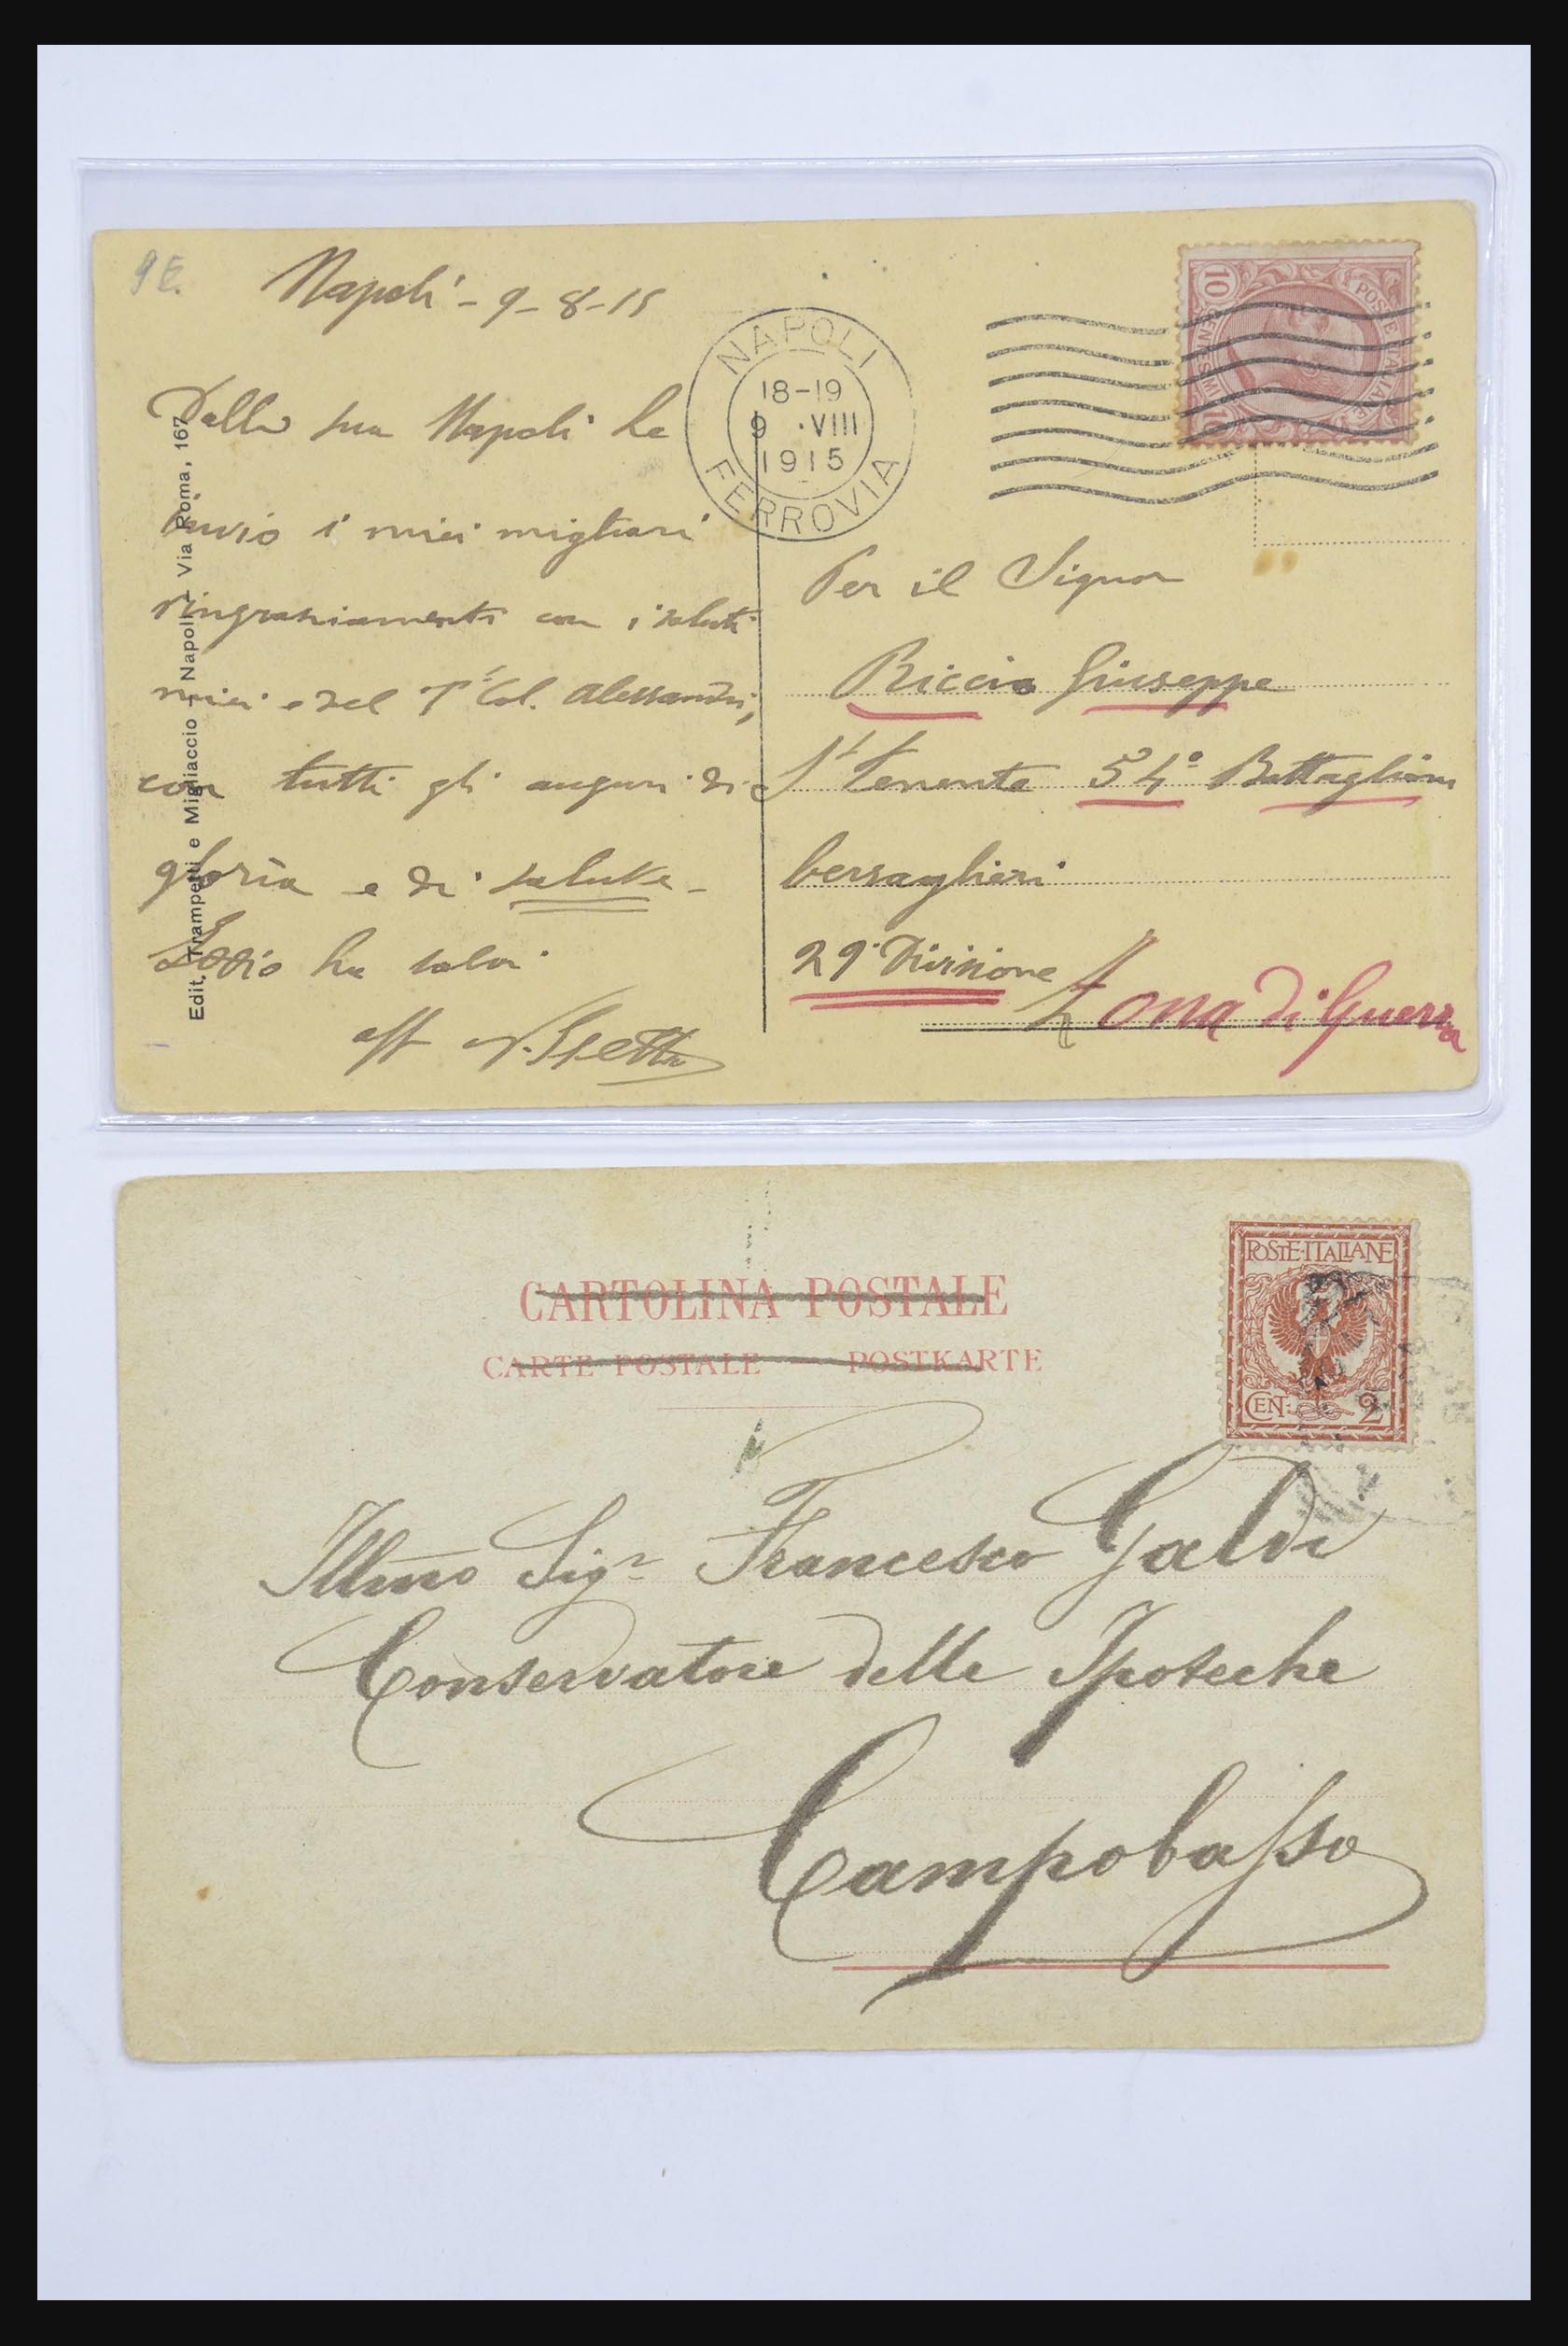 9 E.
Napoli - 9-8-15
Dalla sua Napoli le
invio i miei migliori
ringraziamenti con i saluti
miei e del T. Col. Alessandri,
con tutti gli auguri di
gloria e di salute -
ha
aff
Edit. Trampetti e Migliaccio - Napoli - Via Roma, 167
NAPOLI
18-19
9 · VIII
1915
FERROVIA
POSTE ITALIANE
10 CENTESIMI 10
Per il Signor
Riccio Giuseppe
S. Tenente 54° Battaglione
bersaglieri
29ª Divisione
Zona di Guerra
CARTOLINA POSTALE
CARTE POSTALE — POSTKARTE
POSTE·ITALIANE
CEN· 2
Illmo Sigr Francesco Galdi
Conservatore delle Ipoteche
Campobasso